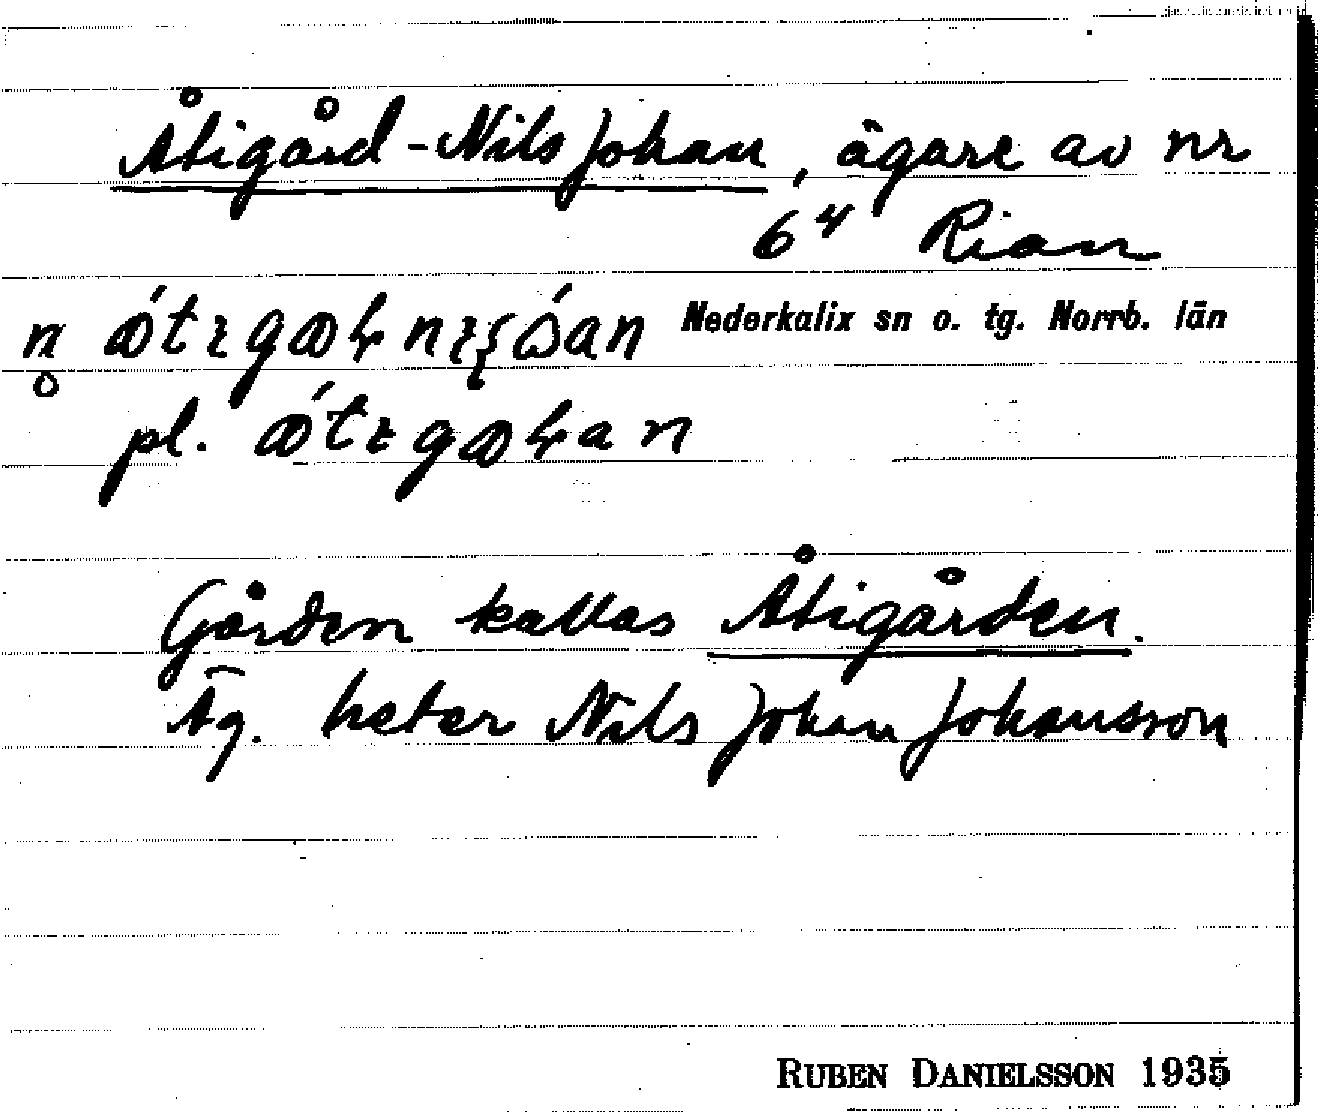 Åtigård-Nils Johan, ägare av nr
6⁴ Rian
Nederkalix sn o. tg. Norrb. län
pl.
Gården kallas Åtigården.
Äg. heter Nils Johan Johansson
RUBEN DANIELSSON 1935